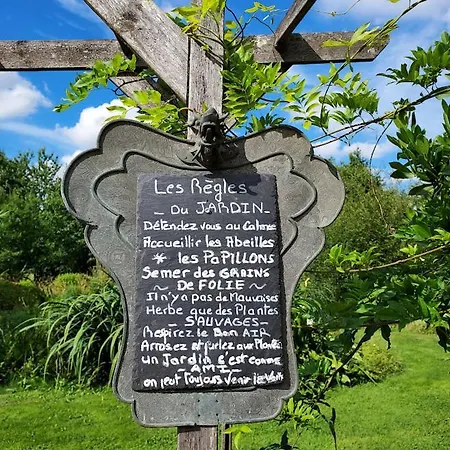 Les Règles
_ Du JARDIN_
Détendez vous au Calme
Accueillir les Abeilles
* les PaPILLONS
Semer des GRAINS
~ DE FOLIE ~
Il N'y a pas de Mauvaises
Herbe que des Plantes
_ SAUVAGES _
Respirez le Grand AIR
Arrosez et parlez Aux Plantes
un Jardin c'est comme
_ AMI _
on peut Toujours venir le voir